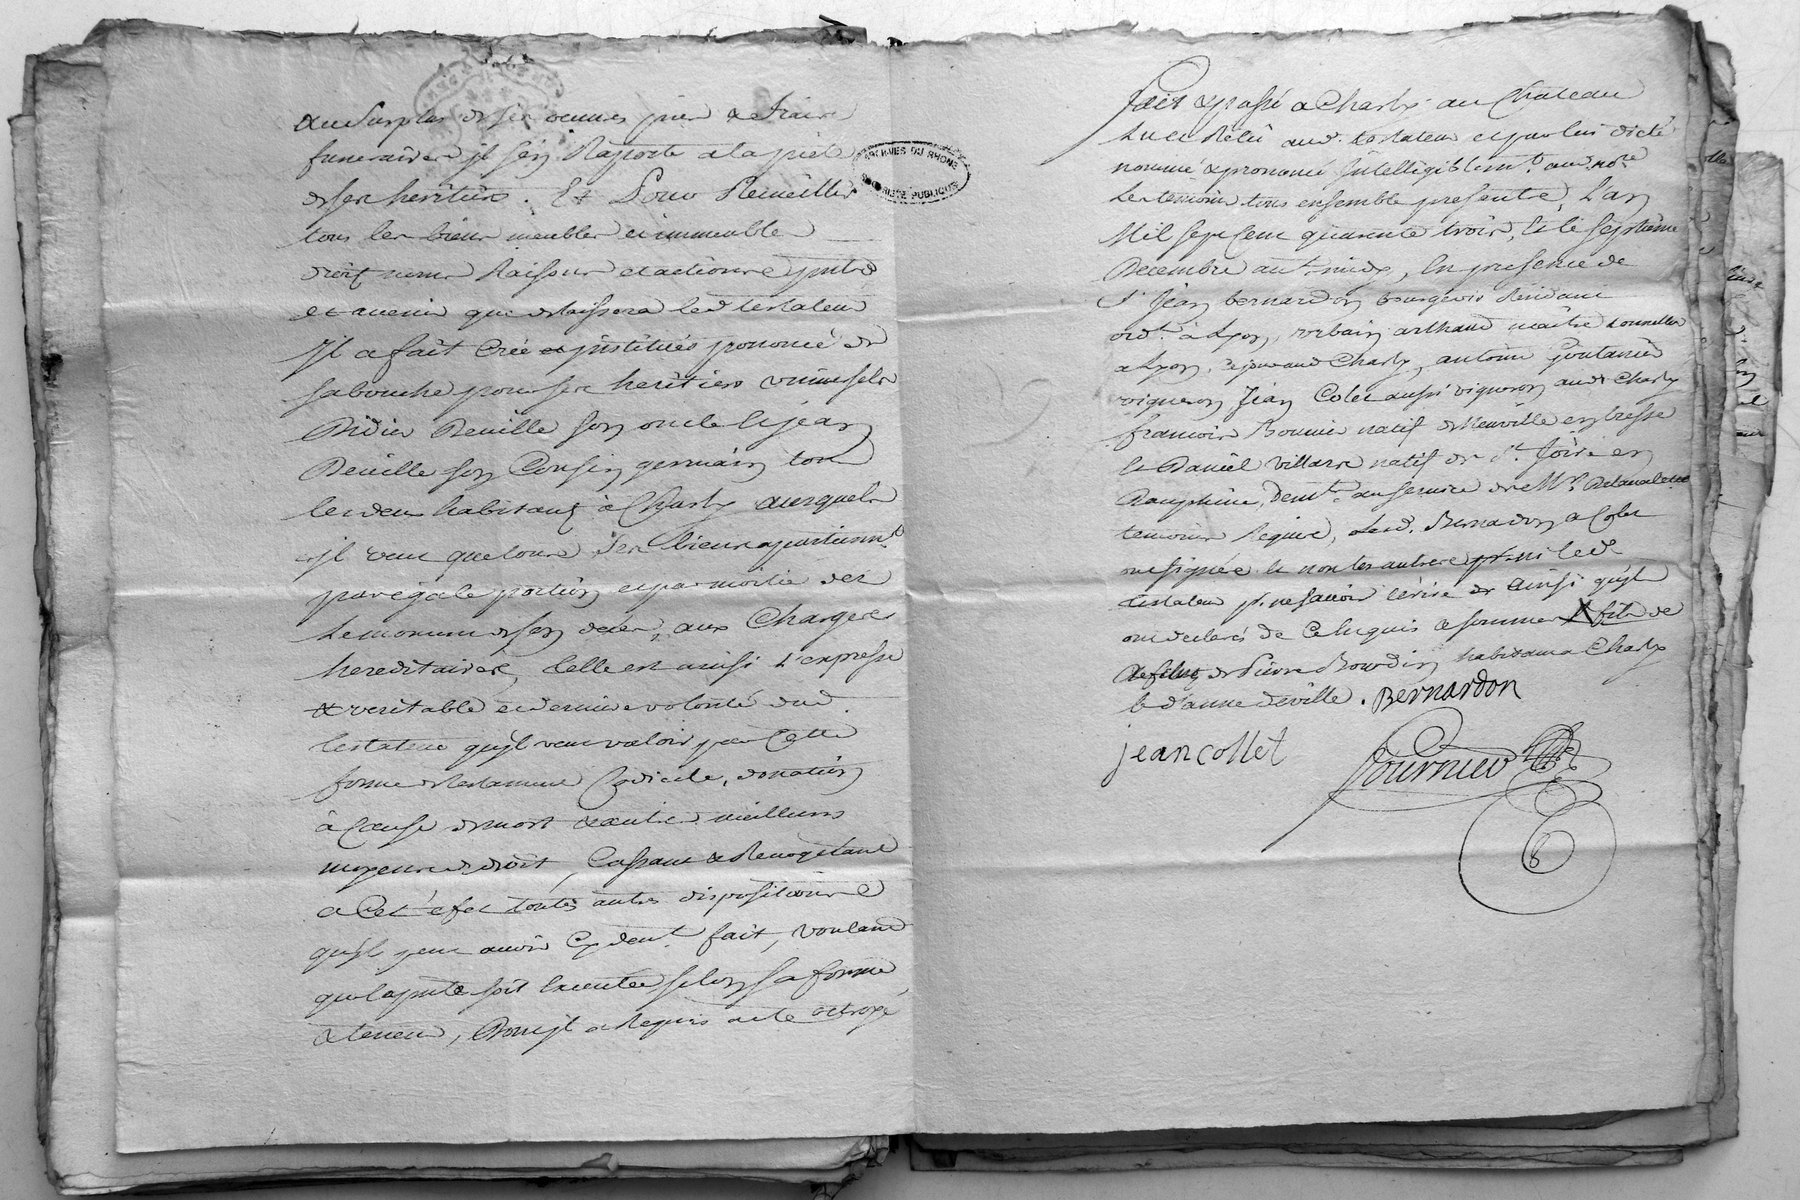 Au Surplus de ses œuvres pies & fraix
funeraires jl s'en Raporte a la pieté
de ses heritiers. Et Pour Recueillir
tous les biens meubles et immeubles
droits noms Raisons et actions pnts
et avenir que delaissera led testateur
jl a fait créé et jnstitués prononcé de
sa bouche pour ses heritiers universels
Didier Deville son oncle & jean
Deville son Cousin germain tous
les deux habitants à Charly auxquels
jl veut que tous ses biens apartienn.t
par égale portion et par moitié dez
le moment de son deces, aux Charges
hereditaires, telle est ainsi l'expresse
& veritable et derniere volonté dud.
testateur qu'jl veut valoir par cette
forme de testament Codicile, donation
à cause de mort & autres meilleurs
moyens de droit, Cassant & Revoquant
a Cet efet toutes autres dispositions
qu'jl peut avoir cy devt. fait, voulant
que la pnte soit executée selon sa forme
& teneur, Dont jl a Requis acte octroyé
fait & passé a Charly au Chateau
Lu et Relu aud. testateur et par lui dicté
nommé & prononcé Intelligiblemt. aud nore
les temoins tous ensemble presents, L'an
Mil sept Cent quarante trois, & le septième
Decembre avant midy, En presence de
Sr Jean bernardon bourgeois Résidant
ordt. à Lyon, urbain arthaud maître tonnelier
a Lyon, de pnt aud Charly, antoine Goutanier
vigneron Jean Colet aussi vigneron aud Charly
francois Bouvier natif de Neuville en bresse
& Daniel Villars natif de St. Joire en
Dauphine, Demt. au service de Mr. Delavalette
temoins Requis, Lesd. Bernardon & Colet
ont signé & non les autres ni led
testateur p. ne savoir écrire de ainsi qu'jl
ont declaré de Ce Enquis & sommés X fils de
de Pierre Bourdin habitant a Charly
& d'anne deville. BERNARDON
jean collet
Fournier